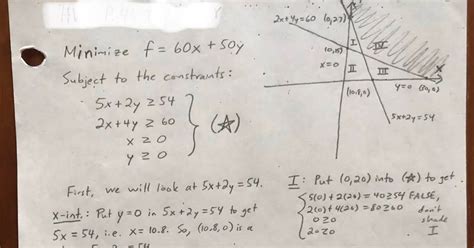 Minimize f = 60x + 50y
Subject to the constraints:
5x + 2y ≥ 54
2x + 4y ≥ 60
x ≥ 0
y ≥ 0
(☆)
First, we will look at 5x + 2y = 54.
x-int.: Put y = 0 in 5x + 2y = 54 to get
5x = 54, i.e. x = 10.8. So, (10.8, 0) is a
2x + 4y = 60
(0, 27)
x = 0
I
IV
II
III
x
(10.8, 0)
y = 0
5x + 2y = 54
I: Put (0, 20) into (☆) to get
5(0) + 2(20) = 40 ≥ 54 FALSE,
2(0) + 4(20) = 80 ≥ 60
0 ≥ 0
20 ≥ 0
don't
shade
I